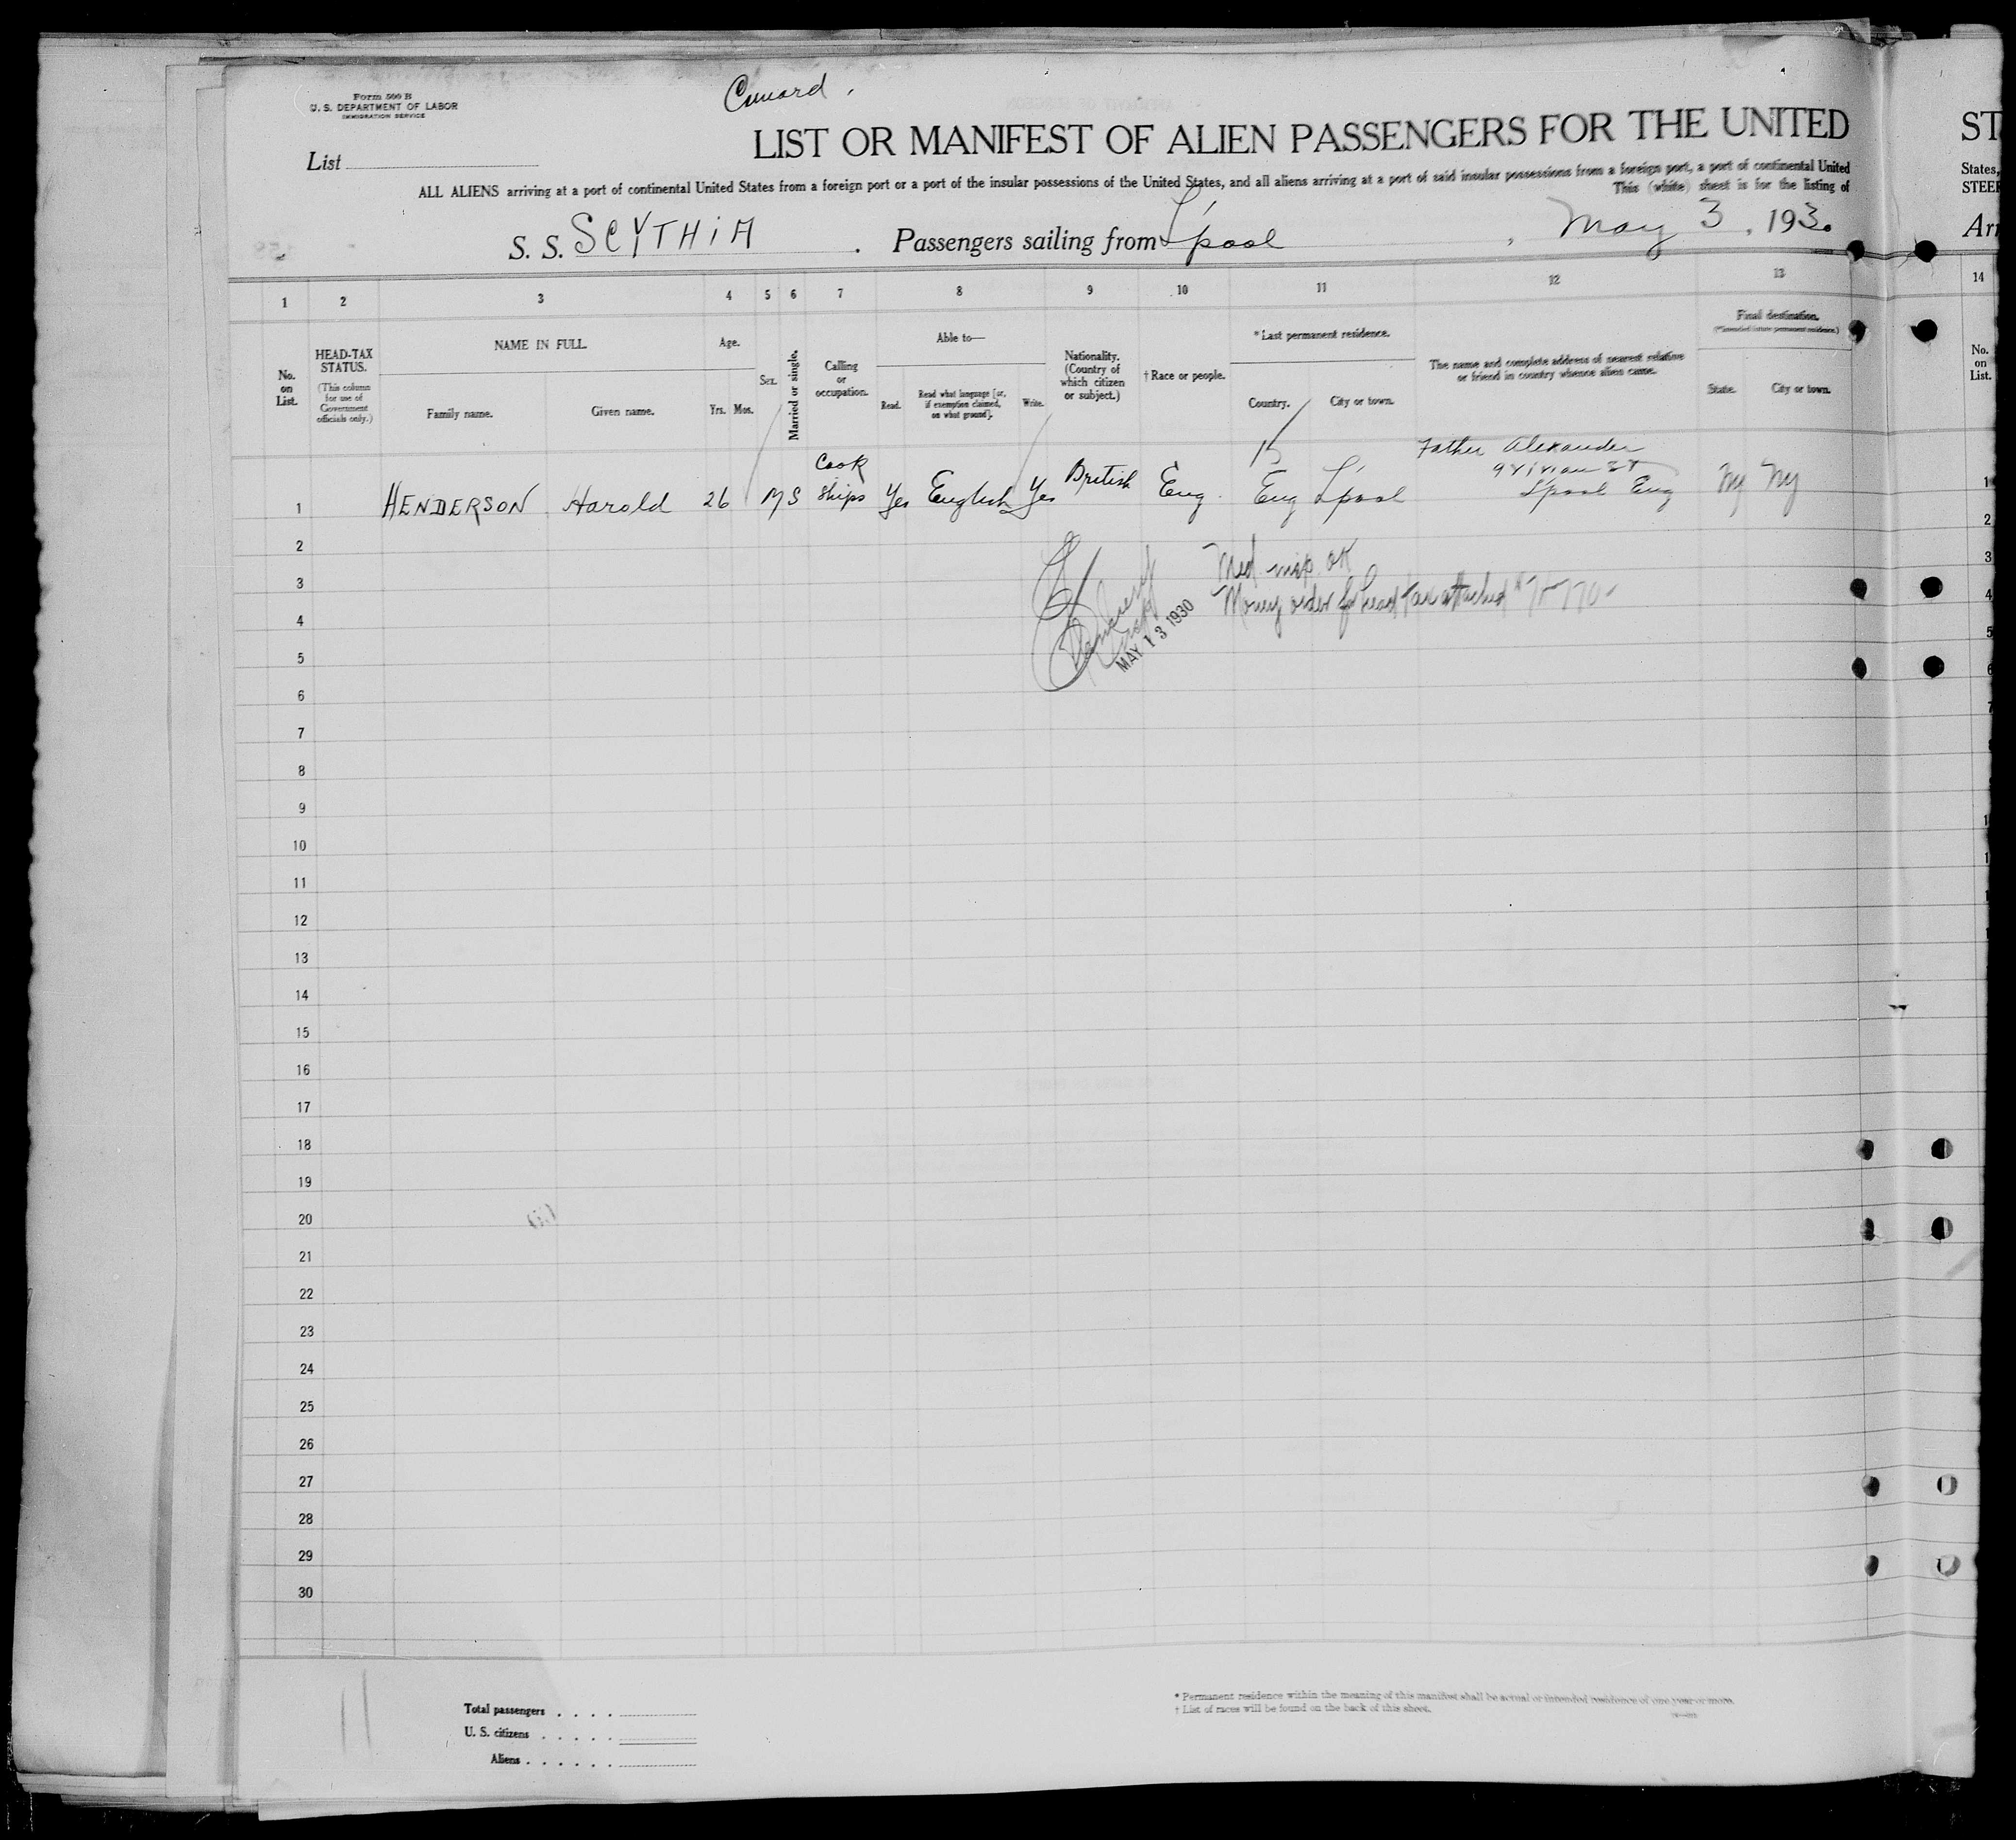 Form 500 B
U. S. DEPARTMENT OF LABOR
IMMIGRATION SERVICE
Cunard.
LIST OR MANIFEST OF ALIEN PASSENGERS FOR THE UNITED
ST
List
ALL ALIENS arriving at a port of continental United States from a foreign port or a port of the insular possessions of the United States, and all aliens arriving at a port of said insular possessions from a foreign port, a port of continental United
States,
This (white) sheet is for the listing of
STEER
S. S. SCYTHIA . Passengers sailing from L'pool , May 3, 1930
Arr
1 2 3 4 5 6 7 8 9 10 11 12 13 14
No. on List.
HEAD-TAX STATUS.
(This column for use of Government officials only.)
NAME IN FULL
Family name. Given name.
Age.
Yrs. Mos.
Sex.
Married or single.
Calling or occupation.
Able to—
Read. Read what language [or, if exemption claimed, on what ground]. Write.
Nationality. (Country of which citizen or subject.)
† Race or people.
* Last permanent residence.
Country. City or town.
The name and complete address of nearest relative or friend in country whence alien came.
Final destination.
(*Intended future permanent residence.)
State. City or town.
No. on List.
1 HENDERSON Harold 26 M S Cook Ships Yes English Yes British Eng. Eng L'pool Father Alexander
L'pool Eng NY NY 1
2 2
Med insp OK
3 3
Money order for head tax attached
4 4
MAY 13 1930
5 5
6 6
7 7
8
9
10
11
12
13
14
15
16
17
18
19
20
21
22
23
24
25
26
27
28
29
30
11
Total passengers . . . .
U. S. citizens . . . . .
Aliens . . . . . .
* Permanent residence within the meaning of this manifest shall be actual or intended residence of one year or more.
† List of races will be found on the back of this sheet.